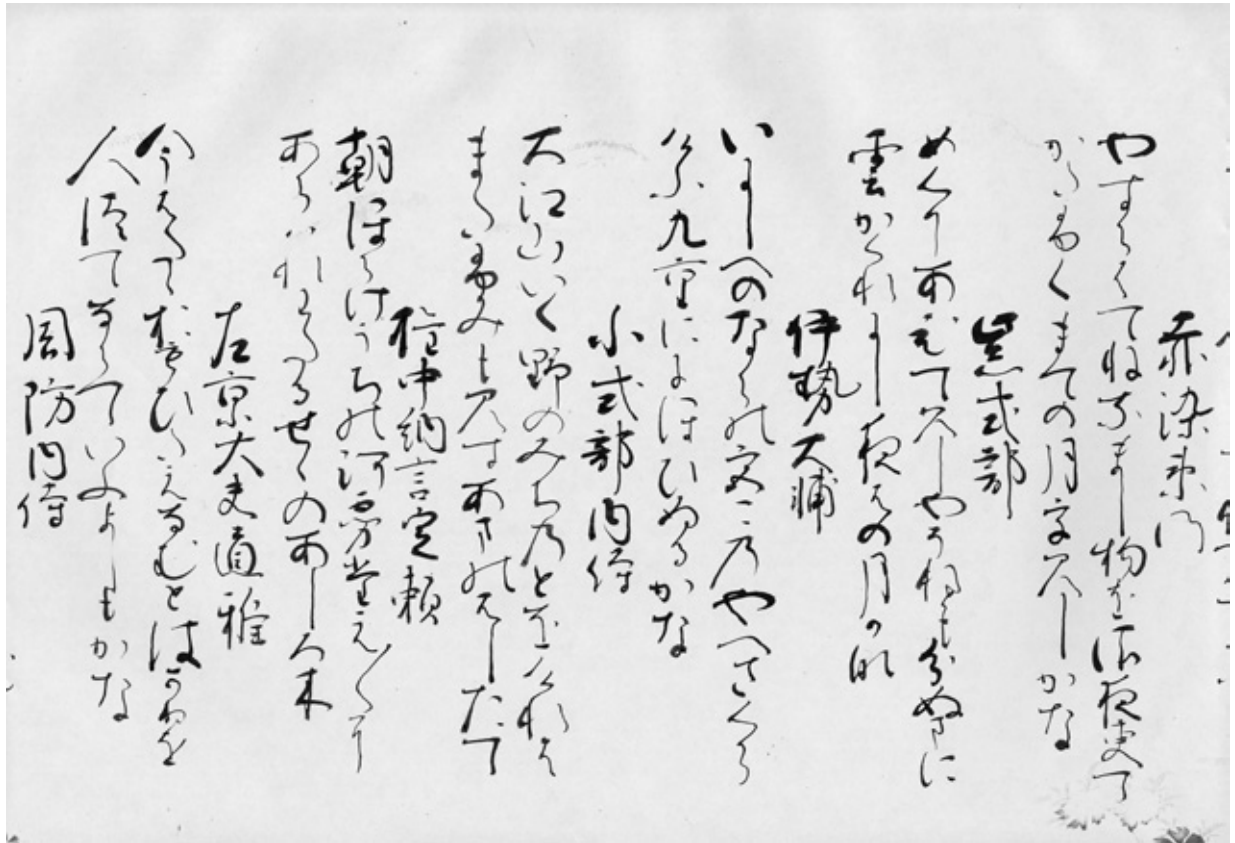 赤染衛門
やすらはてねなまし物を小夜更て
かたふくまての月を見しかな
紫式部
めくりあひて見しやそれとも分ぬまに
雲かくれにし夜はの月かな
伊勢大輔
いにしへのならの都の八やへさくら
けふ九重ににほひぬるかな
小式部内侍
大江山いく野のみちのとをけれは
またふみも見すあまのはしたて
権中納言定頼
朝ほらけうちの河雰たえ〳〵に
あらはれわたるせゝのあしろ木
左京大夫道雅
今はたゝおもひたえなむとはかりを
人伝てならていふよしもかな
周防内侍